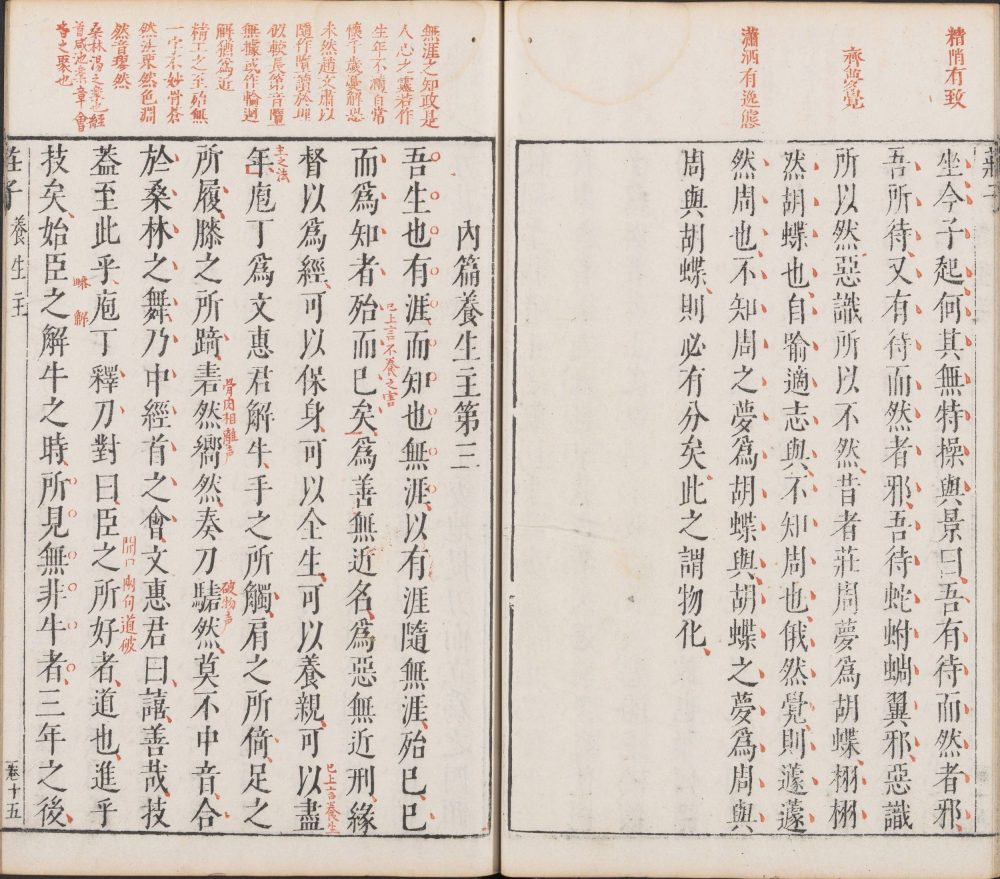 精情有致
齊雙覺
瀟洒有逸態
莊子
坐今子起何其無特操與景曰吾有待而然者邪
吾所待又有待而然者邪吾待蛇蚹蜩翼邪惡識
所以然惡識所以不然昔者莊周夢爲胡蝶栩栩
然胡蝶也自喻適志與不知周也俄然覺則蘧蘧
然周也不知周之夢爲胡蝶與胡蝶之夢爲周與
周與胡蝶則必有分矣此之謂物化
無涯之知政是
人心之靈若作
生年不滿百常
懷千歲憂解恐
未然趙文肅以
隨作隋讀於理
似較長第音覽
無據或作輪迴
解猶爲近
精工之至殆無
一字不妙骨倉
然法聚然色淵
然音璆然
桑林湯之樂也經
首咸池樂章會
音之聚也
內篇養生主第三
吾生也有涯而知也無涯以有涯隨無涯殆已已
已上言不養之害
而爲知者殆而已矣爲善無近名爲惡無近刑緣
已上言養生
督以爲經可以保身可以全生可以養親可以盡
主之法
年庖丁爲文惠君解牛手之所觸肩之所倚足之
骨肉相離声
破物声
所履膝之所踦砉然嚮然奏刀騞然莫不中音合
於桑林之舞乃中經首之會文惠君曰譆善哉技
開口兩句道破
蓋至此乎庖丁釋刀對曰臣之所好者道也進乎
解
技矣始臣之解牛之時所見無非牛者三年之後
莊子
養生主
卷十五